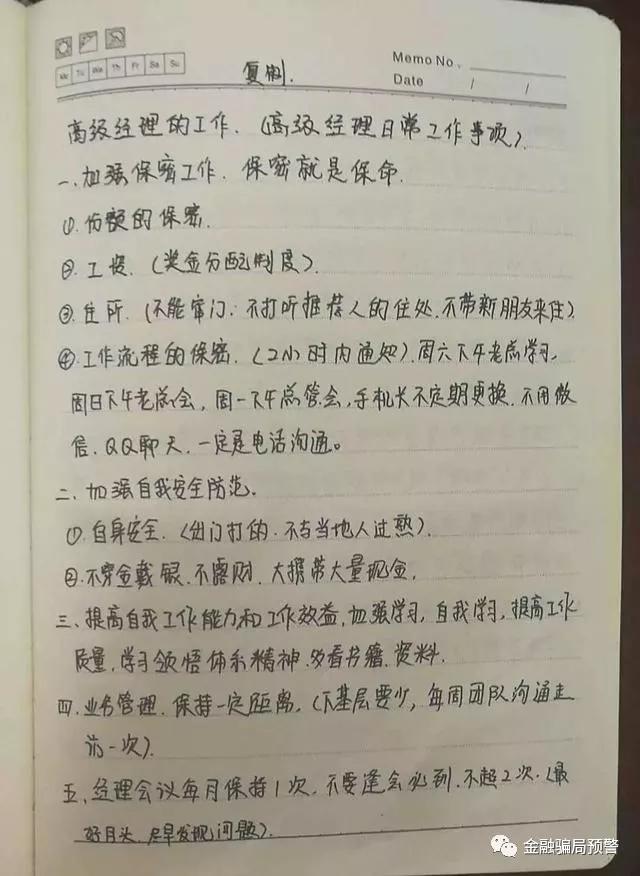 Memo No.
Mo Tu We Th Fr Sa Su
Date / /
复制.
高级经理的工作.(高级经理日常工作事项).
一.加强保密工作.保密就是保命.
①.份额的保密.
②.工资.(奖金分配制度).
③.住所.(不能窜门.不打听推荐人的住处.不带新朋友来住)
④.工作流程的保密.(2小时内通知).周六下午老总学习,
周日下午老总会,周一下午总管会,手机长不定期更换.不用微
信.QQ聊天.一定是电话沟通。
二.加强自我安全防范.
①.自身安全.(出门打的.不与当地人过熟).
②.不穿金戴银.不露财.大携带大量现金.
三.提高自我工作能力和工作效益.加强学习,自我学习,提高工作
质量.学习领悟体系精神.多看书籍.资料.
四.业务管理.保持一定距离.(下基层要少,每周团队沟通走
访一次).
五.经理会议每月保持1次.不要逢会必到.不超2次.(最
好月头.尽早发现问题).
金融骗局预警